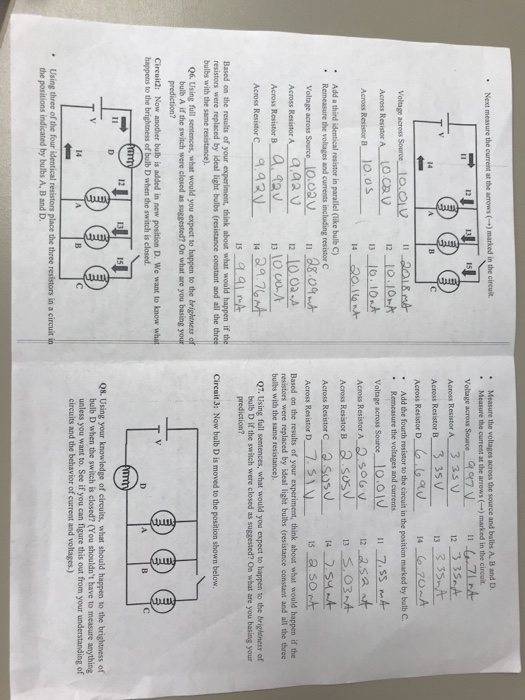 • Next measure the current at the arrows (→) marked in the circuit.
I1
I2
I3
I5
V
A
B
C
I4
Voltage across Source 10.01V I1 20.18mA
Across Resistor A 10.02V I2 10.10mA
Across Resistor B 10.03 I3 10.10mA
I4 20.16mA
• Add a third identical resistor in parallel (like bulb C)
• Remeasure the voltages and currents including resistor C
Voltage across Source 10.02V I1 28.09mA
Across Resistor A 9.92V I2 10.02A
Across Resistor B 9.92V I3 10.00A
Across Resistor C 9.92V I4 29.76mA
I5 9.91mA
Based on the results of your experiment, think about what would happen if the
resistors were replaced by ideal light bulbs (resistance constant and all the three
bulbs with the same resistance).
Q6. Using full sentences, what would you expect to happen to the brightness of
bulb A if the switch were closed as suggested? On what are you basing your
prediction?
Circuit2: Now another bulb is added in new position D. We want to know what
happens to the brightness of bulb D when the switch is closed.
I1
D
I2
I3
I5
V
A
B
C
I4
• Using three of the four identical resistors place the three resistors in a circuit in
the positions indicated by bulbs A, B and D.
• Measure the voltages across the source and bulbs A, B and D.
• Measure the current at the arrows (→) marked in the circuit.
Voltage across Source 9.97V I1 6.71mA
Across Resistor A 3.35V I2 3.35mA
Across Resistor B 3.35V I3 3.35mA
Across Resistor D 6.69V I4 6.70mA
• Add the fourth resistor to the circuit in the position marked by bulb C.
• Remeasure the voltages and currents
Voltage across Source 10.01V I1 7.55mA
Across Resistor A 2.506V I2 2.52mA
Across Resistor B 2.505V I3 5.03mA
Across Resistor C 2.505V I4 7.54mA
Across Resistor D 7.51V I5 2.50mA
Based on the results of your experiment, think about what would happen if the
resistors were replaced by ideal light bulbs (resistance constant and all the three
bulbs with the same resistance).
Q7. Using full sentences, what would you expect to happen to the brightness of
bulb D if the switch were closed as suggested? On what are you basing your
prediction?
Circuit 3: Now bulb D is moved to the position shown below.
V
A
B
C
D
Q8. Using your knowledge of circuits, what should happen to the brightness of
bulb D when the switch is closed? (You shouldn't have to measure anything
unless you want to. See if you can figure this out from your understanding of
circuits and the behavior of current and voltages.)